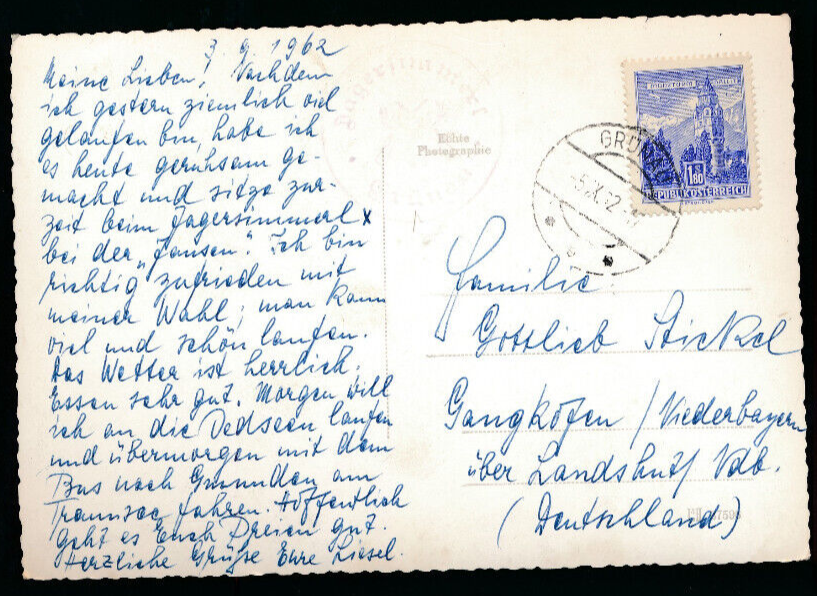 3. 9. 1962
Meine Lieben! Nachdem
ich gestern ziemlich viel
gelaufen bin, habe ich
es heute geruhsam ge-
macht und sitze zur-
zeit beim Jagersimmerl x
bei der „Jausen". Ich bin
richtig zufrieden mit
meiner Wahl; man kann
viel und schön laufen.
Das Wetter ist herrlich.
Essen sehr gut. Morgen will
ich an die Ödseen laufen
und übermorgen mit dem
Bus nach Gmunden am
Traunsee fahren. Hoffentlich
geht es Euch Dreien gut.
Herzliche Grüße Eure Liesel.
Echte
Photographie
GRÜN
1.80
REPUBLIK ÖSTERREICH
Familie
Gottlieb Stickel
Gangkofen / Niederbayern
über Landshut/ Ndb.
(Deutschland)